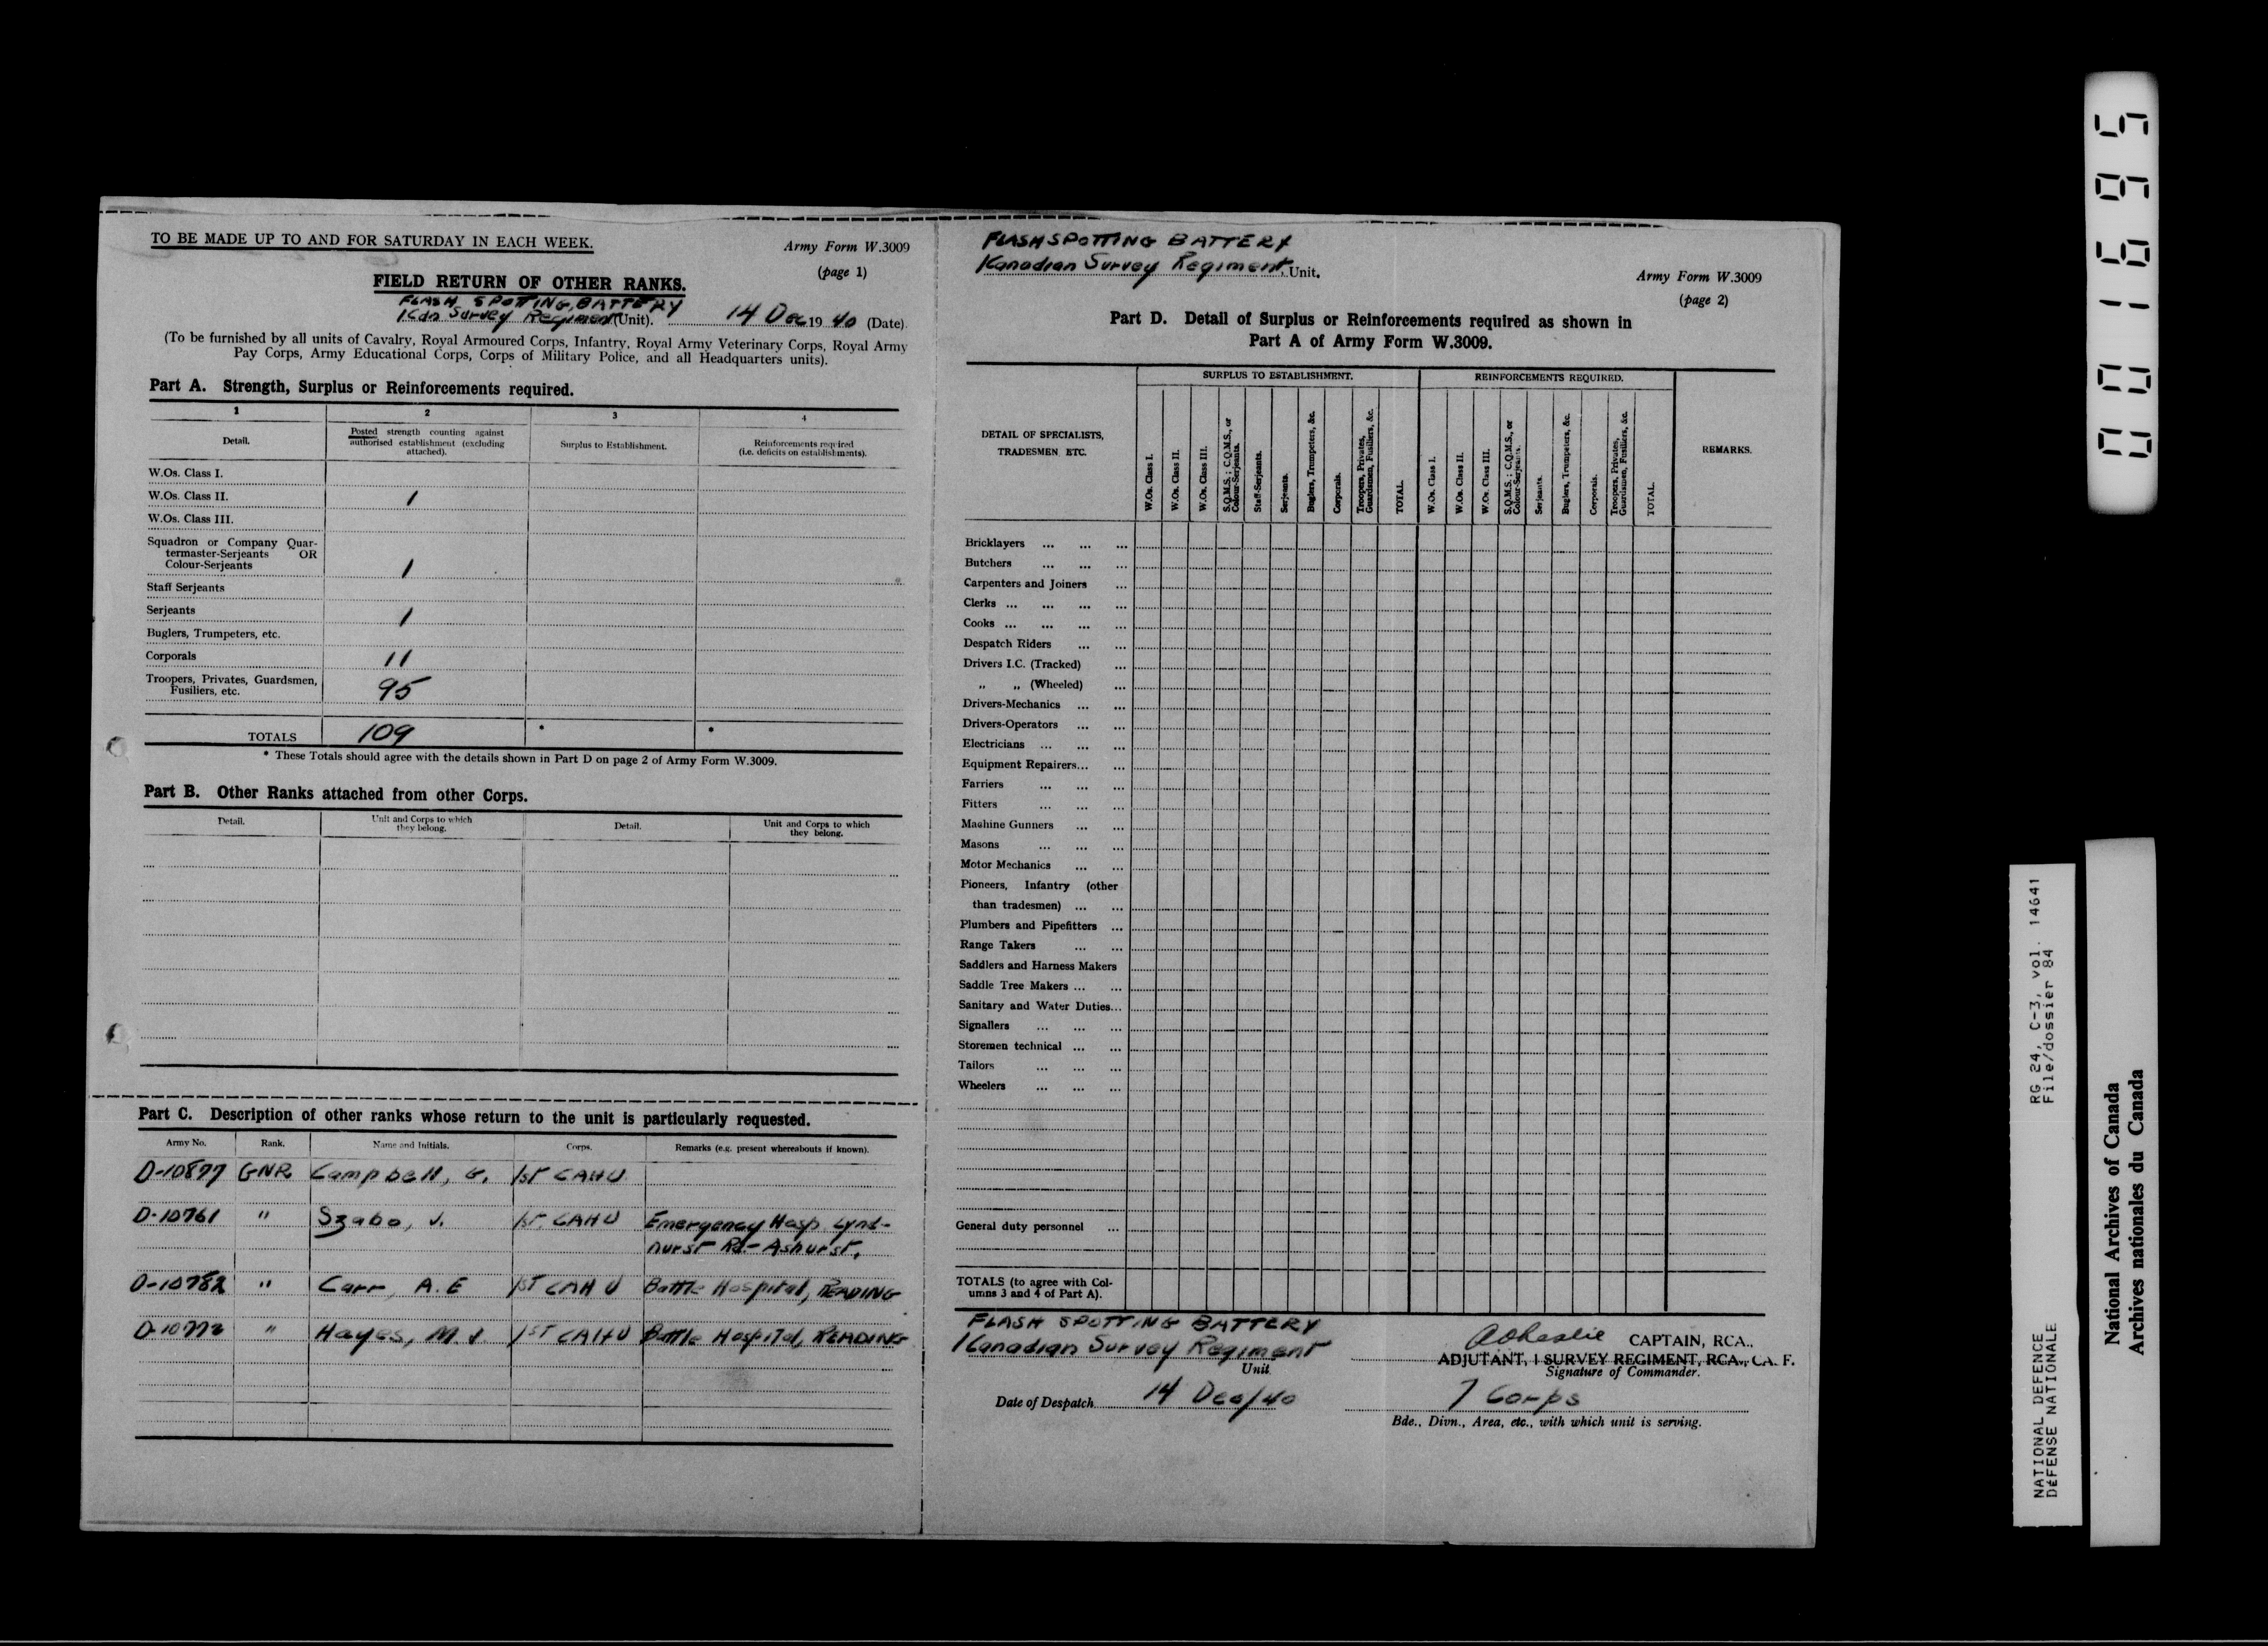 TO BE MADE UP TO AND FOR SATURDAY IN EACH WEEK.
Army Form W.3009
(page 1)
FIELD RETURN OF OTHER RANKS.
FLASH SPOTTING BATTERY
1 Cdn Survey Regiment (Unit). 14 Dec 19 40 (Date).
(To be furnished by all units of Cavalry, Royal Armoured Corps, Infantry, Royal Army Veterinary Corps, Royal Army
Pay Corps, Army Educational Corps, Corps of Military Police, and all Headquarters units).
Part A. Strength, Surplus or Reinforcements required.
1 2 3 4
Detail.
Posted strength counting against
authorised establishment (excluding
attached).
Surplus to Establishment.
Reinforcements required
(i.e. deficits on establishments).
W.Os. Class I.
W.Os. Class II. 1
W.Os. Class III.
Squadron or Company Quar-
termaster-Serjeants OR
Colour-Serjeants 1
Staff Serjeants
Serjeants 1
Buglers, Trumpeters, etc.
Corporals 11
Troopers, Privates, Guardsmen,
Fusiliers, etc. 95
TOTALS 109 * *
* These Totals should agree with the details shown in Part D on page 2 of Army Form W.3009.
Part B. Other Ranks attached from other Corps.
Detail.
Unit and Corps to which
they belong.
Detail.
Unit and Corps to which
they belong.
Part C. Description of other ranks whose return to the unit is particularly requested.
Army No. Rank. Name and Initials. Corps. Remarks (e.g. present whereabouts if known).
D-10877 GNR Campbell, G. 1st CAHU
D-10761 " Szabo, J. 1st CAHU Emergency Hosp Lynd-
hurst Rd - Ashurst.
D-10782 " Carr, A.E 1st CAHU Battle Hospital, READING
D-10772 " Hayes, M J 1st CAHU Battle Hospital, READING
FLASH SPOTTING BATTERY
1 Canadian Survey Regiment Unit.
Army Form W.3009
(page 2)
Part D. Detail of Surplus or Reinforcements required as shown in
Part A of Army Form W.3009.
DETAIL OF SPECIALISTS,
TRADESMEN ETC.
SURPLUS TO ESTABLISHMENT.
W.Os. Class I.
W.Os. Class II.
W.Os. Class III.
S.Q.M.S.; C.Q.M.S., or
Colour-Serjeants.
Staff-Serjeants.
Serjeants.
Buglers, Trumpeters, &c.
Corporals.
Troopers, Privates,
Guardsmen, Fusiliers, &c.
TOTAL.
REINFORCEMENTS REQUIRED.
W.Os. Class I.
W.Os. Class II.
W.Os. Class III.
S.Q.M.S.; C.Q.M.S., or
Colour-Serjeants.
Serjeants.
Buglers, Trumpeters, &c.
Corporals.
Troopers, Privates,
Guardsmen, Fusiliers, &c.
TOTAL.
REMARKS.
Bricklayers ... ... ...
Butchers ... ... ...
Carpenters and Joiners ...
Clerks ... ... ... ...
Cooks ... ... ... ...
Despatch Riders ... ...
Drivers I.C. (Tracked) ...
" " (Wheeled) ...
Drivers-Mechanics ... ...
Drivers-Operators ... ...
Electricians ... ... ...
Equipment Repairers... ...
Farriers ... ... ...
Fitters ... ... ...
Machine Gunners ... ...
Masons ... ... ...
Motor Mechanics ... ...
Pioneers, Infantry (other
than tradesmen) ... ...
Plumbers and Pipefitters ...
Range Takers ... ...
Saddlers and Harness Makers
Saddle Tree Makers ... ...
Sanitary and Water Duties...
Signallers ... ... ...
Storemen technical ... ...
Tailors ... ... ...
Wheelers ... ... ...
General duty personnel ...
TOTALS (to agree with Col-
umns 3 and 4 of Part A).
FLASH SPOTTING BATTERY
1 Canadian Survey Regiment
Unit
CAPTAIN, RCA.,
ADJUTANT, 1 SURVEY REGIMENT, RCA., CA. F.
Signature of Commander.
Date of Despatch 14 Dec/40
7 Corps
Bde., Divn., Area, etc., with which unit is serving.
001695
RG 24, C-3, vol. 14641
File/dossier 84
NATIONAL DEFENCE
DÉFENSE NATIONALE
National Archives of Canada
Archives nationales du Canada